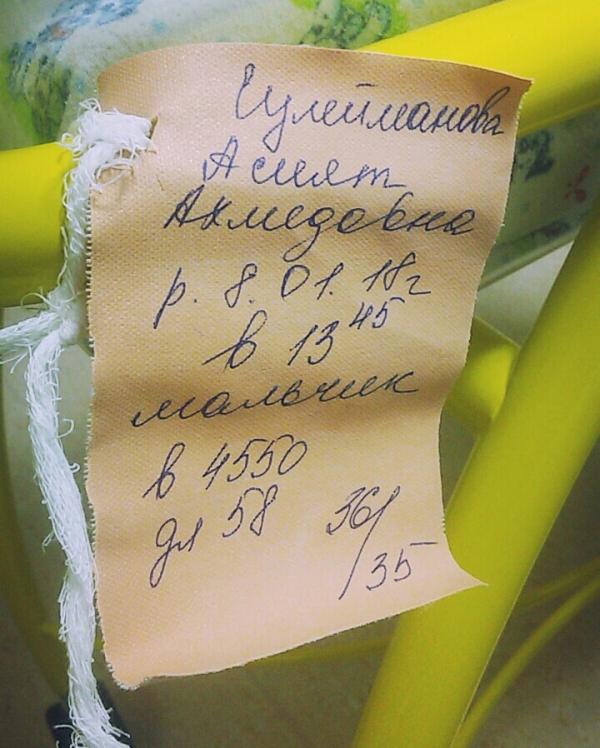 Сулейманова
Асият
Ахмедовна
р. 8. 01. 18г
в 13 45
мальчик
в 4550
дл 58 36/
35